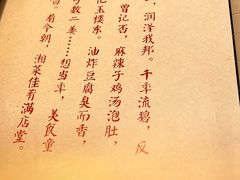 ，润泽我邦。千年流碧，反
曾记否，麻辣子鸡汤泡肚，
玉楼东。油炸豆腐臭而香，
数二姜……想当年，美食童
。看今朝，湘菜佳肴满店堂。